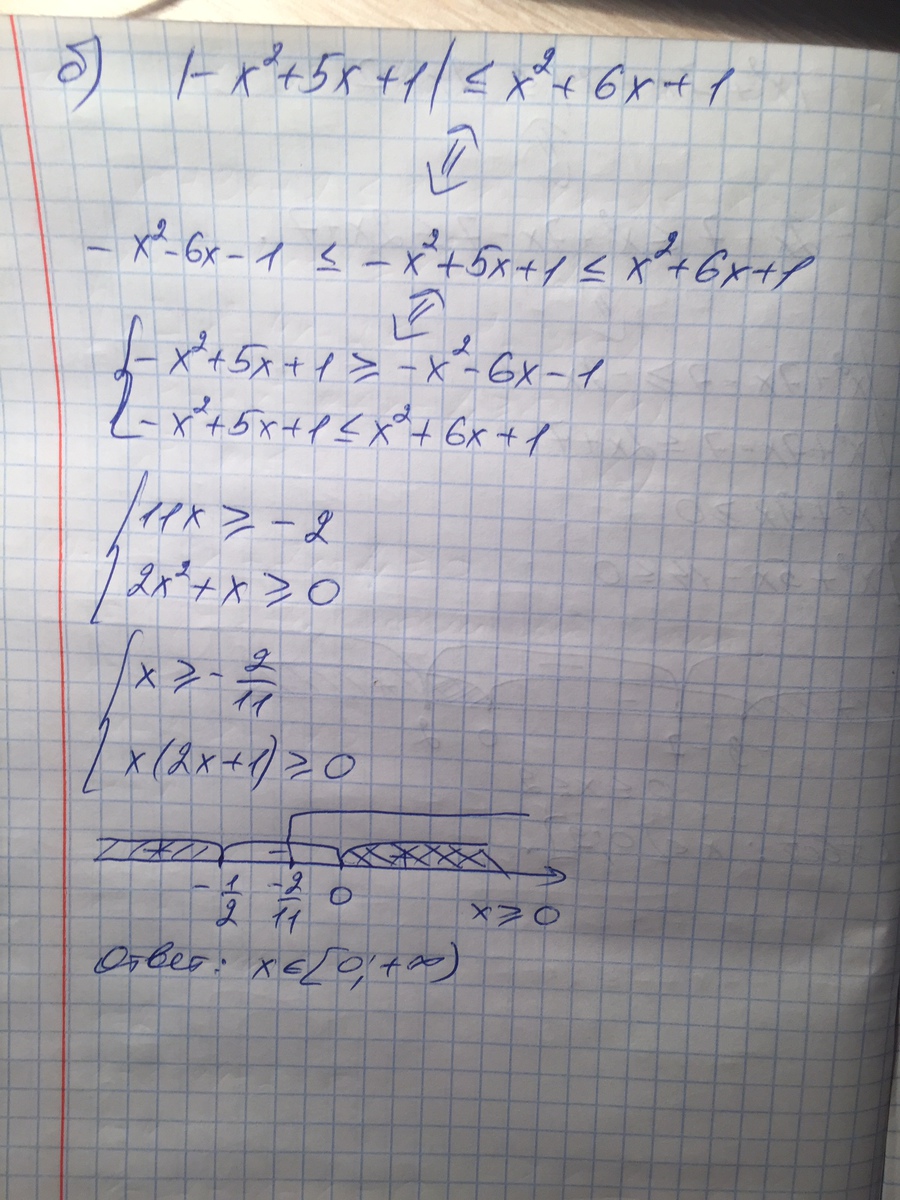 б) |-x²+5x+1| ≤ x²+6x+1
⇕
-x²-6x-1 ≤ -x²+5x+1 ≤ x²+6x+1
⇕
{ -x²+5x+1 ≥ -x²-6x-1
-x²+5x+1 ≤ x²+6x+1
{ 11x ≥ -2
2x²+x ≥ 0
{ x ≥ -2/11
x(2x+1) ≥ 0
+ -
-1/2 -2/11 0 x ≥ 0
Ответ: x∈[0;+∞)